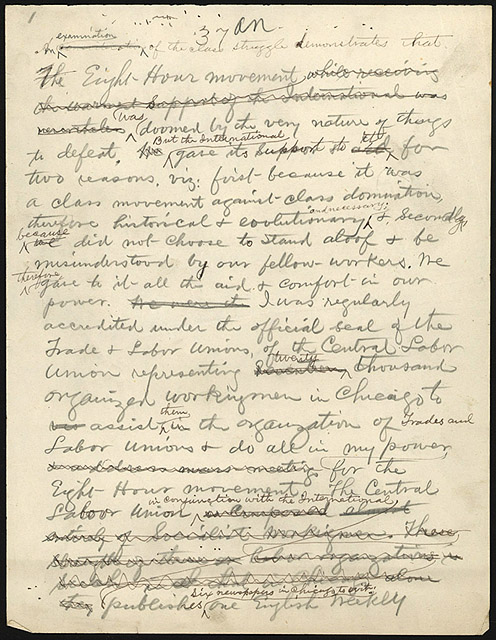 1
37 an.
examination
An of the class struggle demonstrates that
The Eight-Hour movement while receiving
the warmest Support of the International was
nevertheless was doomed by the very nature of things
But the International it
to defeat. gave its support to for
two reasons, viz: first-because it was
a class movement against class domination,
and necessary;
therefore historical & evolutionary & Secondly,
because
we did not choose to stand aloof & be
misunderstood by our fellow-workers. We
therefore
gave to it all the aid & comfort in our
power. We were I was regularly
accredited under the official seal of the
Trade & Labor Unions, of the Central Labor
twenty
Union representing thousand
organized workingmen in Chicago to
them
assist in the organization of Trades and
Labor Unions & do all in my power,
to address mass meetings for the
Eight-Hour movement. The Central
in conjunction with the International,
Labor Union is Composed almost
entirely of Socialistic Workingmen. These,
Labor organizations
alone
Six newspapers in Chicago to wit:
publishes one English Weekly